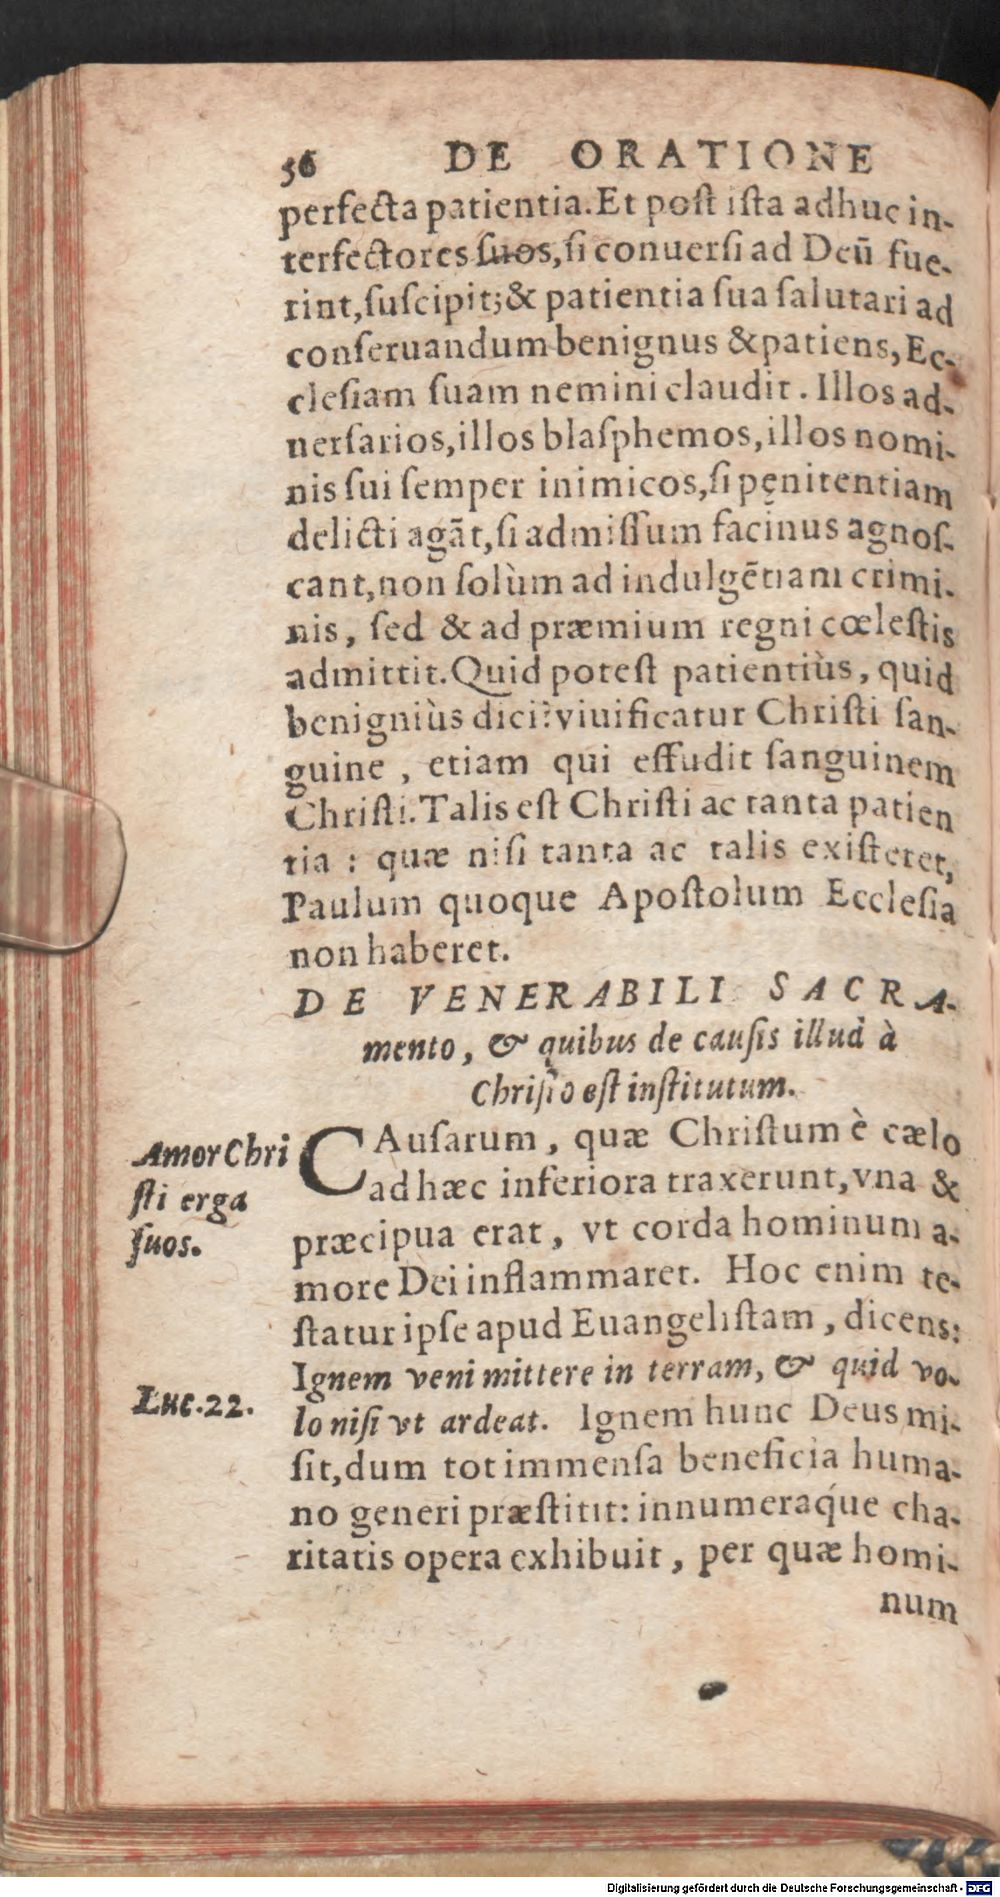 56 DE ORATIONE
perfecta patientia. Et poſt iſta adhuc in-
terfectores ſuos, ſi conuerſi ad Deū fue-
rint, ſuſcipit; & patientia ſua ſalutari ad
conſeruandum benignus & patiens, Ec-
cleſiam ſuam nemini claudit. Illos ad-
uerſarios, illos blaſphemos, illos nomi-
nis ſui ſemper inimicos, ſi pęnitentiam
delicti agāt, ſi admiſſum facinus agnoſ-
cant, non ſolùm ad indulgētiam crimi-
nis, ſed & ad præmium regni cœleſtis
admittit. Quid poteſt patientiùs, quid
benigniùs dici? viuificatur Chriſti ſan-
guine, etiam qui effudit ſanguinem
Chriſti. Talis eſt Chriſti ac tanta patien
tia: quæ niſi tanta ac talis exiſteret,
Paulum quoque Apoſtolum Eccleſia
non haberet.
DE VENERABILI SACRA-
mento, & quibus de cauſis illud à
Chriſto eſt inſtitutum.
Amor Chri
ſti erga
ſuos.
CAuſarum, quæ Chriſtum è cælo
ad hæc inferiora traxerunt, vna &
præcipua erat, vt corda hominum a-
more Dei inflammaret. Hoc enim te-
ſtatur ipſe apud Euangeliſtam, dicens:
Ignem veni mittere in terram, & quid vo-
Luc. 22.
lo niſi vt ardeat. Ignem hunc Deus mi-
ſit, dum tot immenſa beneficia huma-
no generi præſtitit: innumeraq́ue cha-
ritatis opera exhibuit, per quæ homi-
num
Digitalisierung gefördert durch die Deutsche Forschungsgemeinschaft - DFG